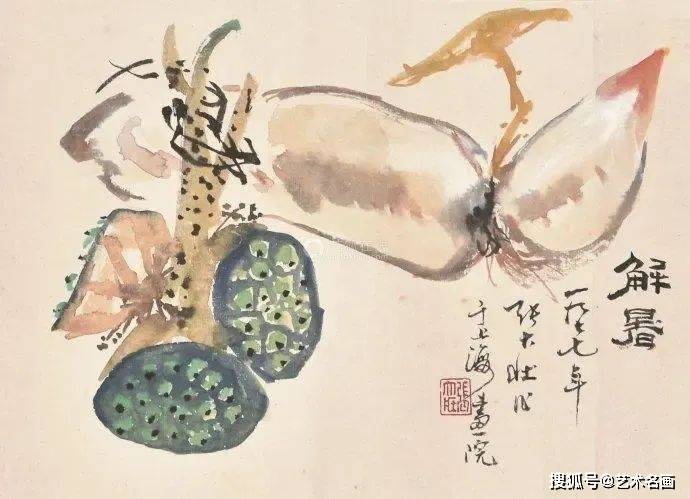 解暑
一九七七年
张大壯作
于上海畫院
搜狐号@艺术名画